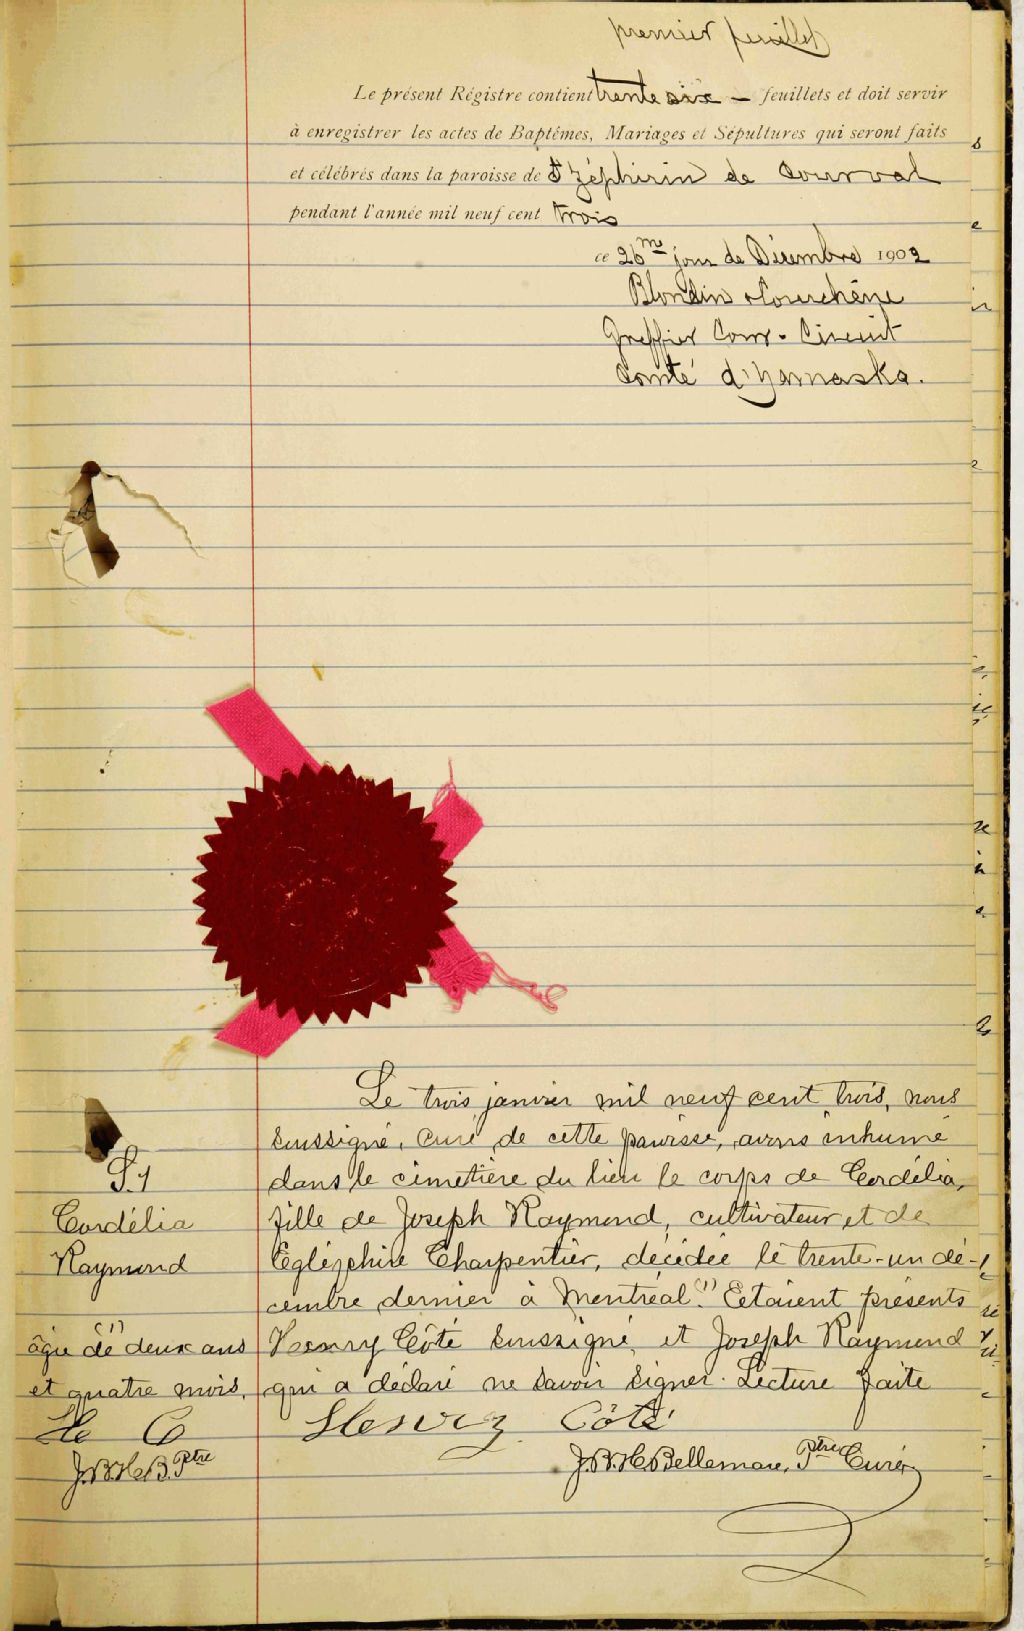 premier feuillet
Le présent Régistre contient trente six — feuillets et doit servir
à enregistrer les actes de Baptêmes, Mariages et Sépultures qui seront faits
et célébrés dans la paroisse de St Zéphirin de Courval
pendant l'année mil neuf cent trois
ce 26me jour de Décembre 1902
Blondin & Courchêne
Greffier Cour. Circuit
Comté d'Yamaska.
Le trois janvier mil neuf cent trois, nous
soussigné, curé de cette paroisse, avons inhumé
S.1
dans le cimetière du lieu le corps de Cordélia,
Cordélia
fille de Joseph Raymond, cultivateur et de
Raymond
Charpentier, décédée le trente-un dé-
cembre dernier à Montréal.(1) Etaient présents
(1)
âgée de deux ans
Henry Côté soussigné, et Joseph Raymond
et quatre mois.
qui a déclaré ne savoir signer. Lecture faite
He C
Henry Côté
J.B.H.B. Ptre
J.B.H. Bellemare, Ptre Curé